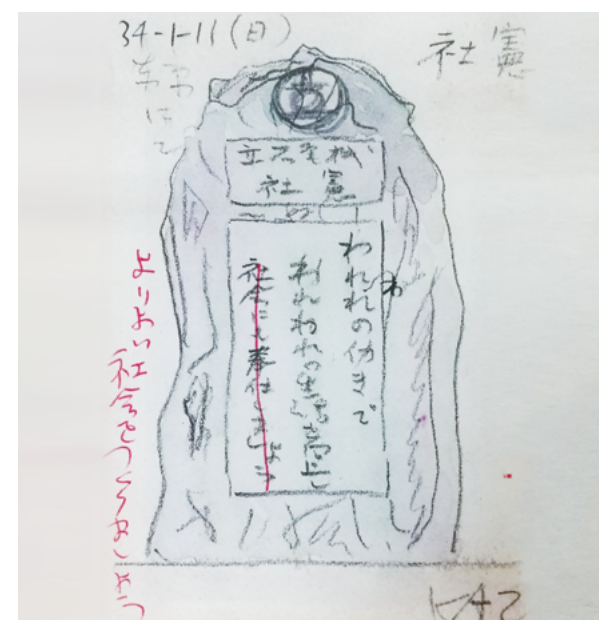 34-1-11(日)
社憲
立
立石電機
社憲
われわれの仂きで
われわれの生活を向上し
社会にも奉仕しましょう
よりよい社会をつくりましょう